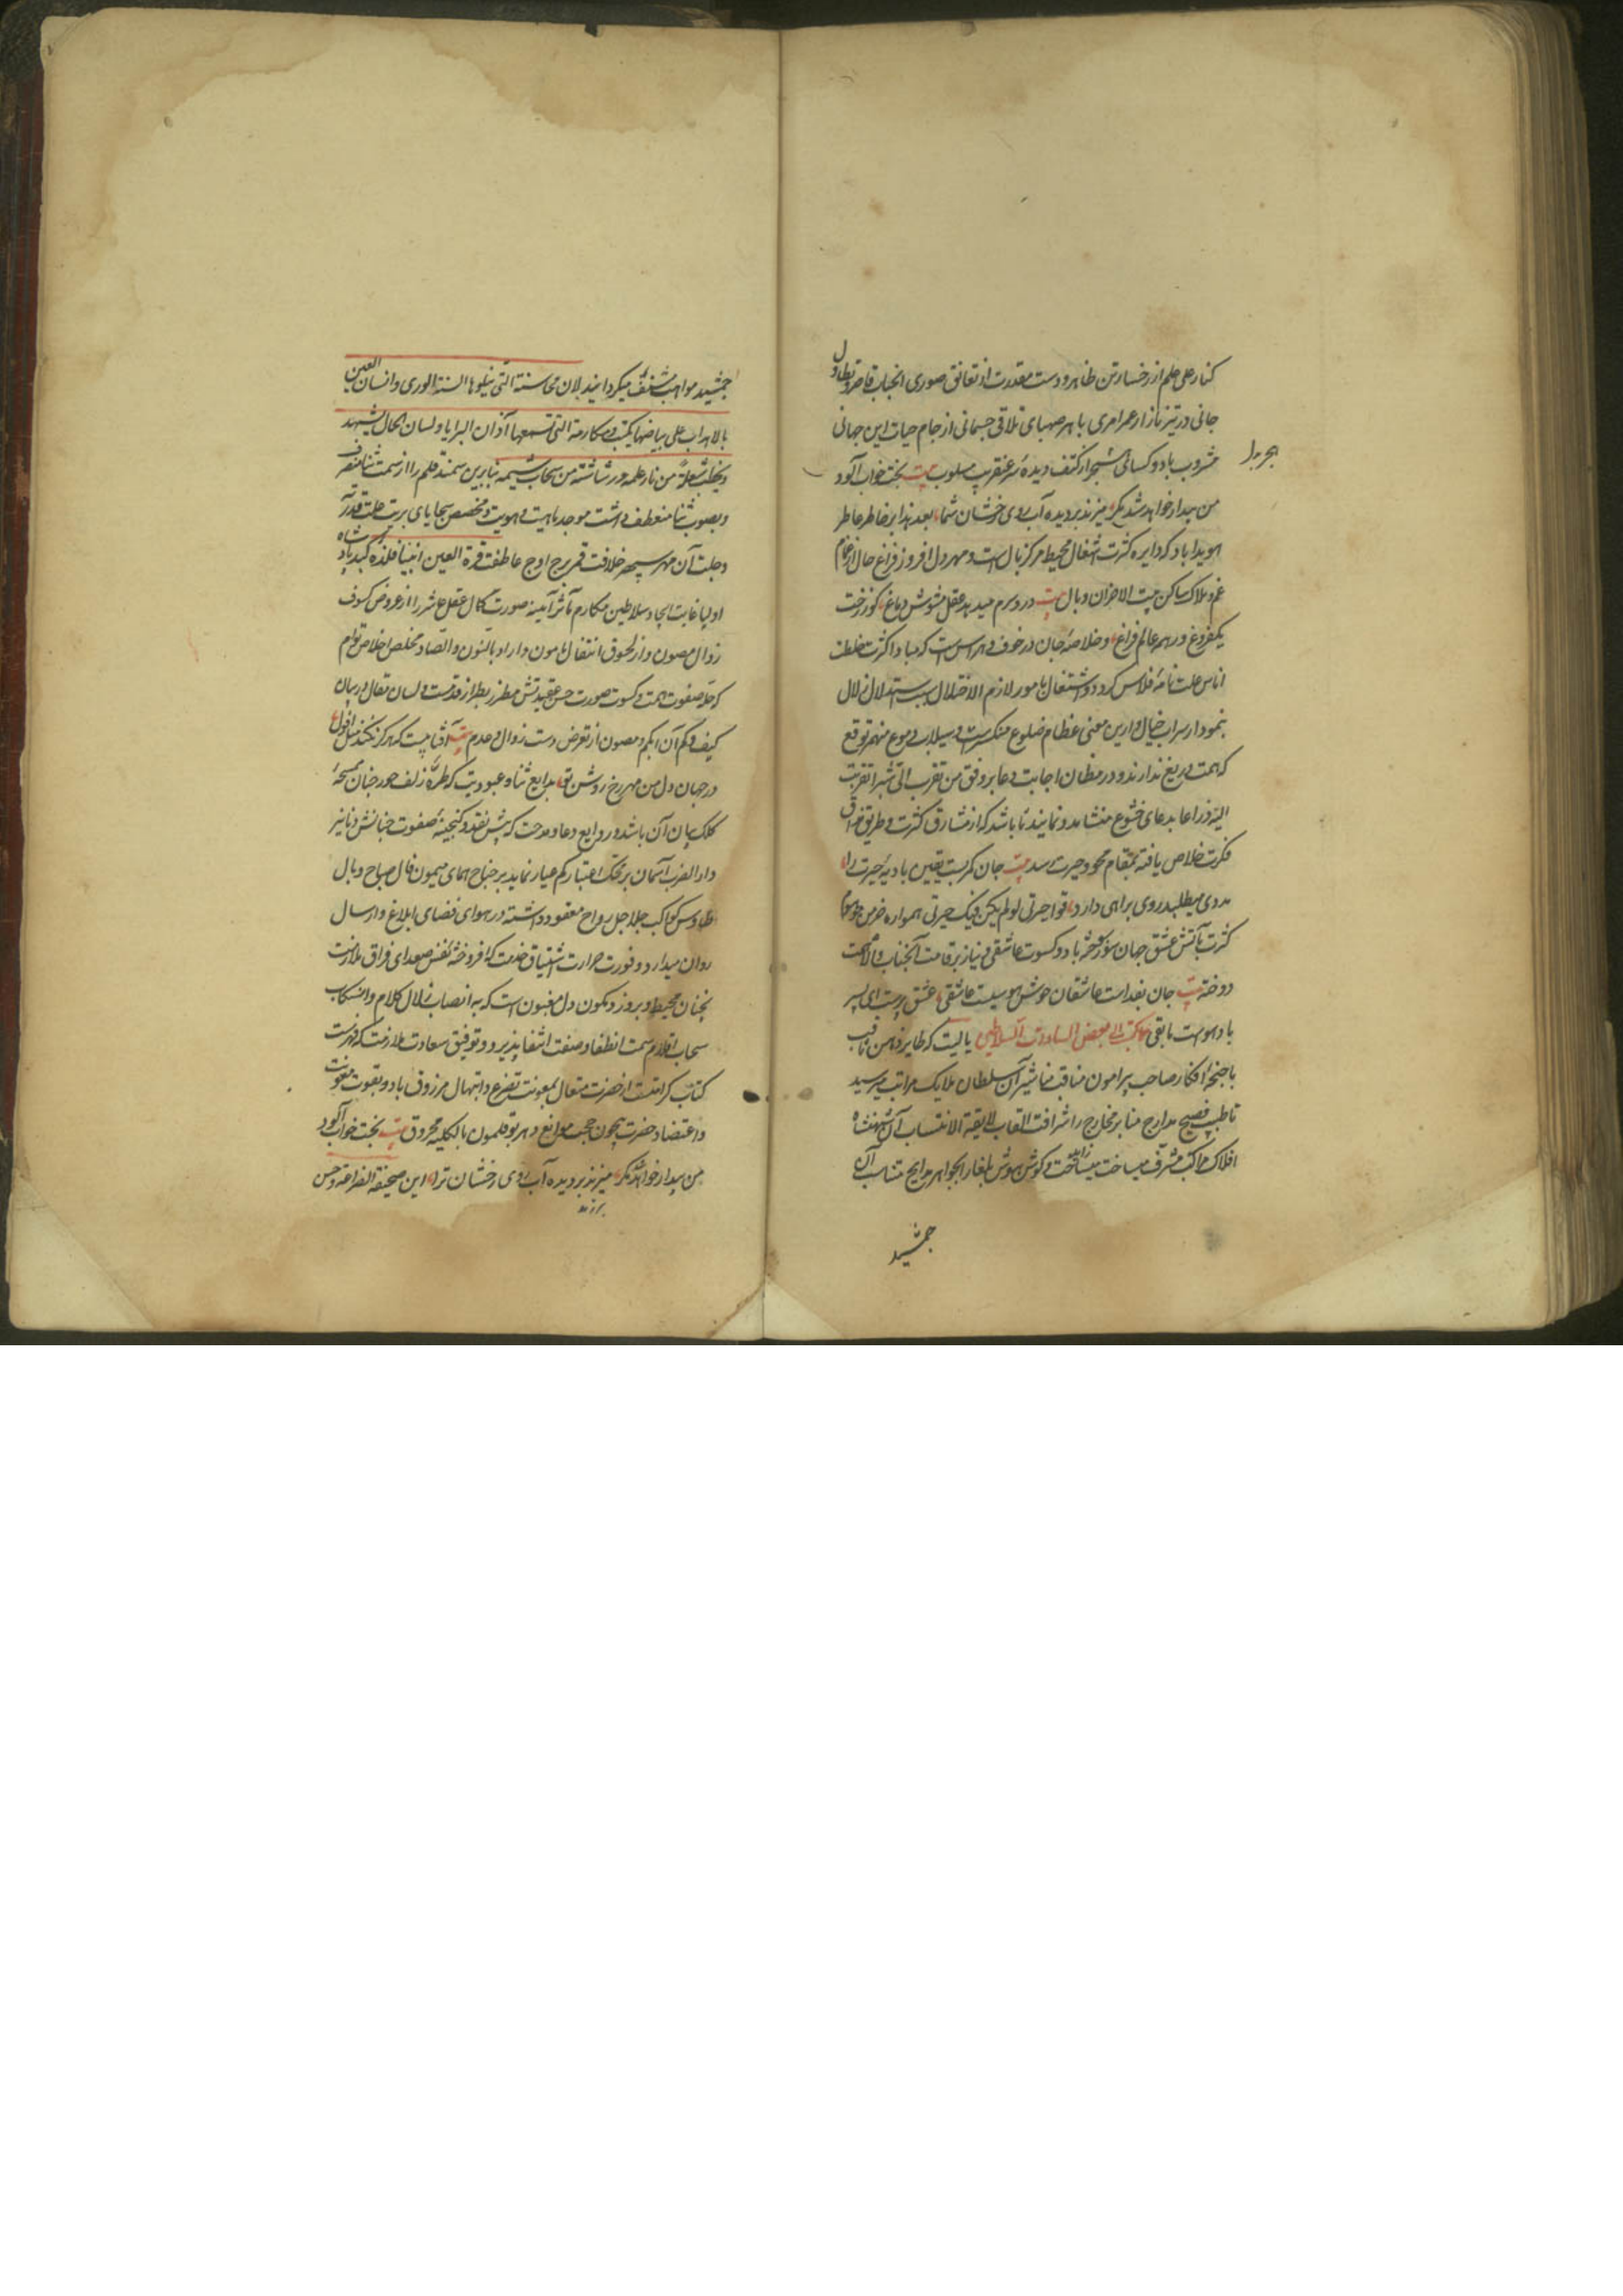 کنار علی حلم از رخسار تن ظاهر و دست مقدرت از تعانق صوری انجناب قاصر و تطاول
جانی در تیز بازار عمر امری باهر صهبای تلاقی جسمانی از جام حیات این جهانی
مشروب باد و کسانی دیده عنقریب مسلوب بیت بخت خواب آلود
من بیدار خواهد شد مگر میزند بر دیده آب روی رخشان شما بعد هذا بر خاطر عاطر
هویدا باد که دایره کثرت اشغال محیط مرکز بال است و مهر دل افروز فراغ حال از غمام
غم و ملال ساکن بیت الاحزان وبال بیت درد سرم میدهد عقل مشوش دماغ کو ز رخت
یکفروغ در همه عالم فراغ و خلاصه جان در خوف و هراس است که مبادا کثرت خلطت
اناس علت نامه افلاس کردد و اشتغال بامور لازم الاختلال سبب استدلال زلال
بنمودار سراب خیال و ازین معنی عظام ضلوع منکسر است و سیلاب دموع منهمر توقع
که همت دریغ ندارند و در مظان اجابت دعا بر وفق من تقرب الی شبرا تقربت
الیه ذراعا بدعای خشوع منشا مدد نمایند تا باشد که از مشارق کثرت و طریق
فکرت خلاص یافته بمقام محو و حیرت رسد بیت جان کمر بست یقین بادیه حیرت را
مددی میطلبد روی براهی دارد فوا حیرتی لو لم یکن فیک حیرتی همواره خرمن
کثرت بآتش عشق جهان سوز سوخته باد و کسوت عاشقی و نیاز بر قامت آنجناب والا همت
دوخته بیت جان بفدات عاشقان خوش هوسیست عاشقی عشق پرست ای پسر
باد هواست مابقی مما کتب الی بعض السادات السلاطین یا لیت که طایر ذهن ثاقب
باجنحه افکار صاحب پیرامون مناقب مناشیر آن سلطان ملایک مراتب میرسید
تا خطیب فصیح مدارج منابر مخارج را شرافت القاب لایقة الانتساب آن شهنشاه
افلاک مواکب مشرف میساخت و گوش هوش بلغا را بجواهر مدایح متناسب آن
جمشید
جمشید مواهب مشنف میگردانید لان محاسنه التی یتلوها السنة الوری و انسان العین
بالاهداب علی بیاضها یکتب و مکارمه التی تسمعها آذان البرایا و لسان الحال یشهد
و یخطب شعلة من نار علمه و رشاشته من سحاب شیمه بنابرین سمند قلم را از سمت ثنا منصرف
و بصوب ثنا منعطف داشت موجد ماهیت و هویت و مخصص سجایای بریت علت قدرته
و جلت آن مهر سپهر خلافت قمر برج اوج عاطفت قرة العین انبیا فلذه کبد پادشاه
اولیا غایت ایجاد سلاطین مکارم مآثر آینه صورت کمال عقل عاشر را از عروض کسوف
زوال مصون و از لحوق انتقال مامون داراد بالنون و الصاد مخلص اخلاص توام
که حله صفوت همت و کسوت صورت حسن عقیدتش مطرز بطراز قدمت و لسان مقال در بیان
کیف و کم آن ابکم و مصون از تعرض دست زوال و عدم بیت آفتابیست که هرکز نکند میل افول
در جهان دل من مهر رخ روشن تو بدایع ثنا و عبودیت که طره زلف حور جنان ممسحه
کلک بیان آن باشد و روایع دعا و مدحت که پیش نقد گنجینه صفوت جنانش دنانیر
دار الضرب آسمان بر محک اعتبار کم عیار نماید بر جناح همای میمون فال صباح و بال
طاوس کواکب جلاجل رواح معقود داشته در هوای فضای ابلاغ و ارسال
روان میدارد و فورت حرارت اشتیاق خدمت که افروخته نفس صعدای فراق ملازمت
بجنان محیط و بروز و کمون دل مغبون است که به انصباب زلال کلام و انسکاب
سحاب اقلام سمت انطفا و صفت انتفا پذیرد و توفیق سعادت ملازمت که فهرست
کتاب کرامتست از حضرت متعال بمعونت تضرع و ابتهال مرزوق باد و بقوت معونت
و اعتضاد حضرت بیچون حجب موانع دهر بوقلمون بالکلیه محروق بیت بخت خواب آلود
من بیدار خواهد شد مگر میزند بر دیده آب روی رخشان ترا این صحیفة الضراعه و حسن